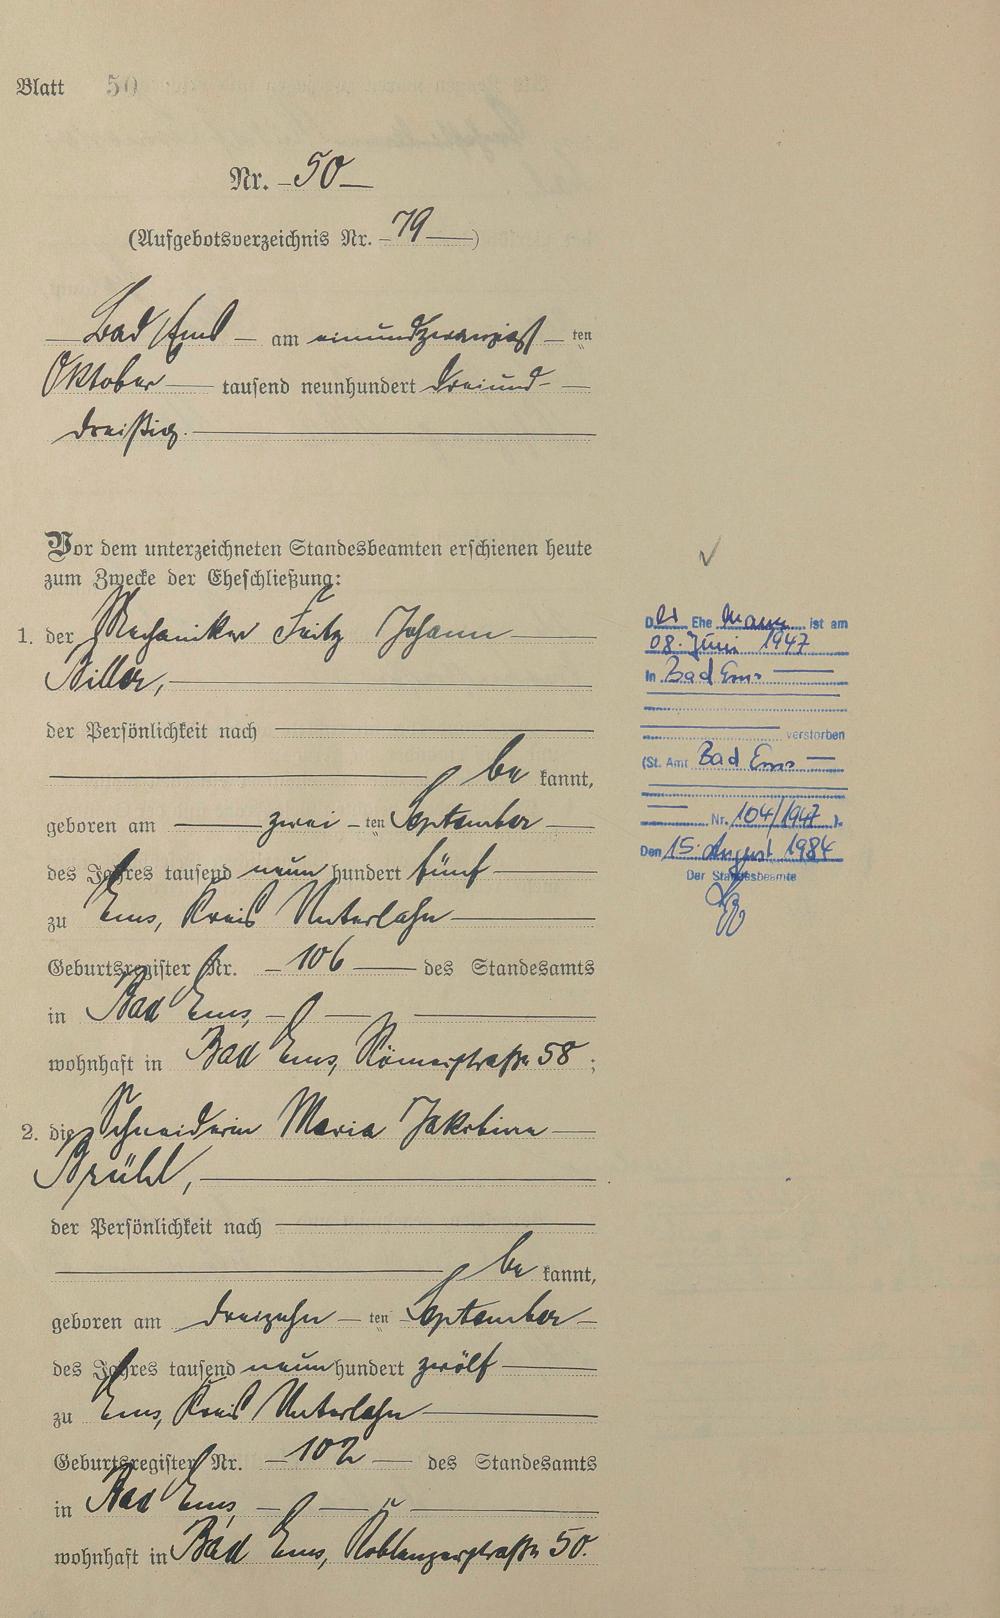 Blatt 50
Nr. 50
(Aufgebotsverzeichnis Nr. 79)
Bad Ems am einundzwanzigsten
Oktober tausend neunhundert dreiund-
dreißig.
Vor dem unterzeichneten Standesbeamten erschienen heute
zum Zwecke der Eheschließung:
1. der Mechaniker Fritz Johann
Biller,
der Persönlichkeit nach
be kannt,
geboren am zwei ten September
des Jahres tausend neun hundert fünf
zu Ems, Kreis Unterlahn
Geburtsregister Nr. 106 des Standesamts
in Bad Ems,
wohnhaft in Bad Ems, Römerstraße 58;
2. die Schneiderin Maria Jakobine
Brühl,
der Persönlichkeit nach
be kannt,
geboren am dreizehn ten September
des Jahres tausend neun hundert zwölf
zu Ems, Kreis Unterlahn
Geburtsregister Nr. 102 des Standesamts
in Bad Ems,
wohnhaft in Bad Ems, Koblenzerstraße 50.
Der Ehe Mann ist am
08. Juni 1947
in Bad Ems
verstorben
(St. Amt Bad Ems
Nr. 104/1947).
Den 15. August 1984
Der Standesbeamte